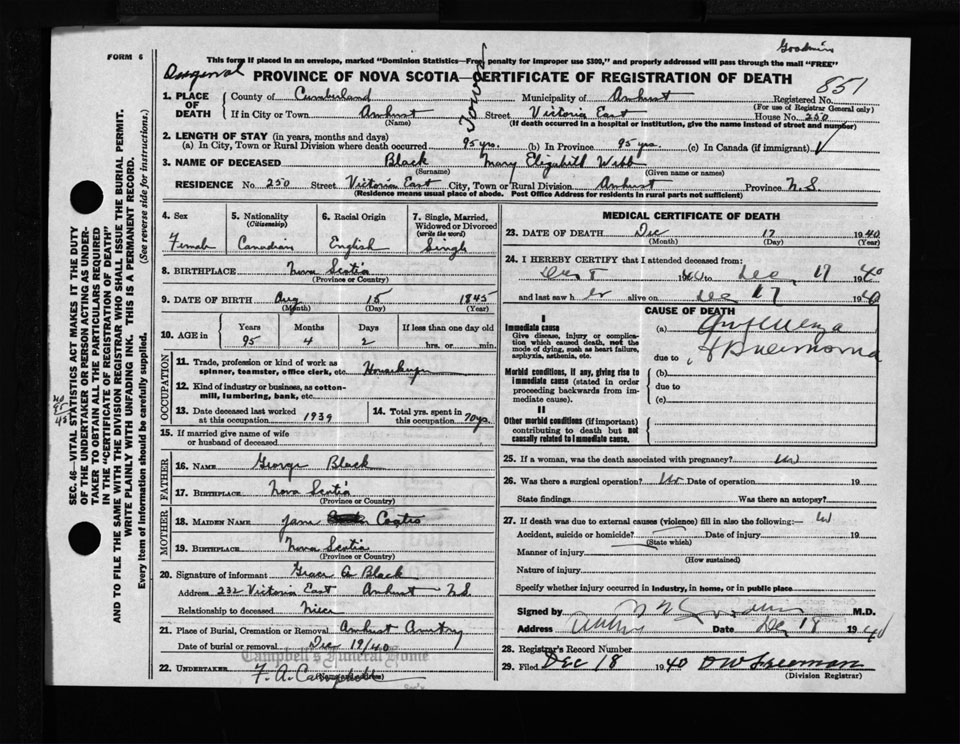 Goodwin
FORM 6
This form if placed in an envelope, marked "Dominion Statistics—Free, penalty for improper use $300," and properly addressed will pass through the mail "FREE"
PROVINCE OF NOVA SCOTIA—CERTIFICATE OF REGISTRATION OF DEATH
851
1. PLACE OF DEATH
County of Cumberland Municipality of Amherst Registered No.
(For use of Registrar General only)
If in City or Town Amherst Street Victoria East House No. 250
(Name) (If death occurred in a hospital or institution, give the name instead of street and number)
Town
2. LENGTH OF STAY (in years, months and days)
(a) In City, Town or Rural Division where death occurred 95 yrs. (b) In Province 95 yrs. (c) In Canada (if immigrant)
3. NAME OF DECEASED Black Mary Elizabeth Webb
(Surname) (Given name or names)
RESIDENCE No 250 Street Victoria East City, Town or Rural Division Amherst Province N.S.
(Residence means usual place of abode. Post Office Address for residents in rural parts not sufficient)
4. Sex
Female
5. Nationality
(Citizenship)
Canadian
6. Racial Origin
English
7. Single, Married, Widowed or Divorced
(write the word)
Single
8. BIRTHPLACE Nova Scotia
(Province or Country)
9. DATE OF BIRTH Aug 15 1845
(Month) (Day) (Year)
10. AGE in
Years Months Days If less than one day old
95 4 2 hrs. or min.
OCCUPATION
11. Trade, profession or kind of work as
spinner, teamster, office clerk, etc. Housekeeper
12. Kind of industry or business, as cotton-
mill, lumbering, bank, etc.
13. Date deceased last worked
at this occupation 1939
14. Total yrs. spent in
this occupation 70 yrs.
15. If married give name of wife
or husband of deceased
FATHER
16. NAME George Black
17. BIRTHPLACE Nova Scotia
(Province or Country)
MOTHER
18. MAIDEN NAME Jane Coates
19. BIRTHPLACE Nova Scotia
(Province or Country)
20. Signature of informant Grace G Black
Address 232 Victoria East Amherst N.S.
Relationship to deceased Niece
21. Place of Burial, Cremation or Removal Amherst Cemetery
Date of burial or removal Dec 19/40
Campbell's Funeral Home
22. UNDERTAKER F. A. Campbell
MEDICAL CERTIFICATE OF DEATH
23. DATE OF DEATH Dec 17 1940
(Month) (Day) (Year)
24. I HEREBY CERTIFY that I attended deceased from:
to Dec 17 1940
and last saw her alive on Dec 17 1940
CAUSE OF DEATH
I
Immediate cause
Give disease, injury or complication which caused death, not the mode of dying, such as heart failure, asphyxia, asthenia, etc.
(a) Influenza
due to & Pneumonia
Morbid conditions, if any, giving rise to immediate cause (stated in order proceeding backwards from immediate cause).
(b)
due to
(c)
II
Other morbid conditions (if important) contributing to death but not causally related to immediate cause.
25. If a woman, was the death associated with pregnancy? No
26. Was there a surgical operation? No Date of operation 19
State findings Was there an autopsy?
27. If death was due to external causes (violence) fill in also the following:—
Accident, suicide or homicide? Date of injury 19
(State which)
Manner of injury
(How sustained)
Nature of injury
Specify whether injury occurred in industry, in home, or in public place
Signed by M.D.
Address Amherst Date Dec 18 1940
28. Registrar's Record Number
29. Filed Dec 18 1940 D W Freeman
(Division Registrar)
SEC. 46—VITAL STATISTICS ACT MAKES IT THE DUTY
OF THE UNDERTAKER OR PERSON ACTING AS UNDER-
TAKER TO OBTAIN ALL THE PARTICULARS REQUIRED
IN THE "CERTIFICATE OF REGISTRATION OF DEATH"
AND TO FILE THE SAME WITH THE DIVISION REGISTRAR WHO SHALL ISSUE THE BURIAL PERMIT.
WRITE PLAINLY WITH UNFADING INK. THIS IS A PERMANENT RECORD.
Every item of information should be carefully supplied. (See reverse side for instructions.)